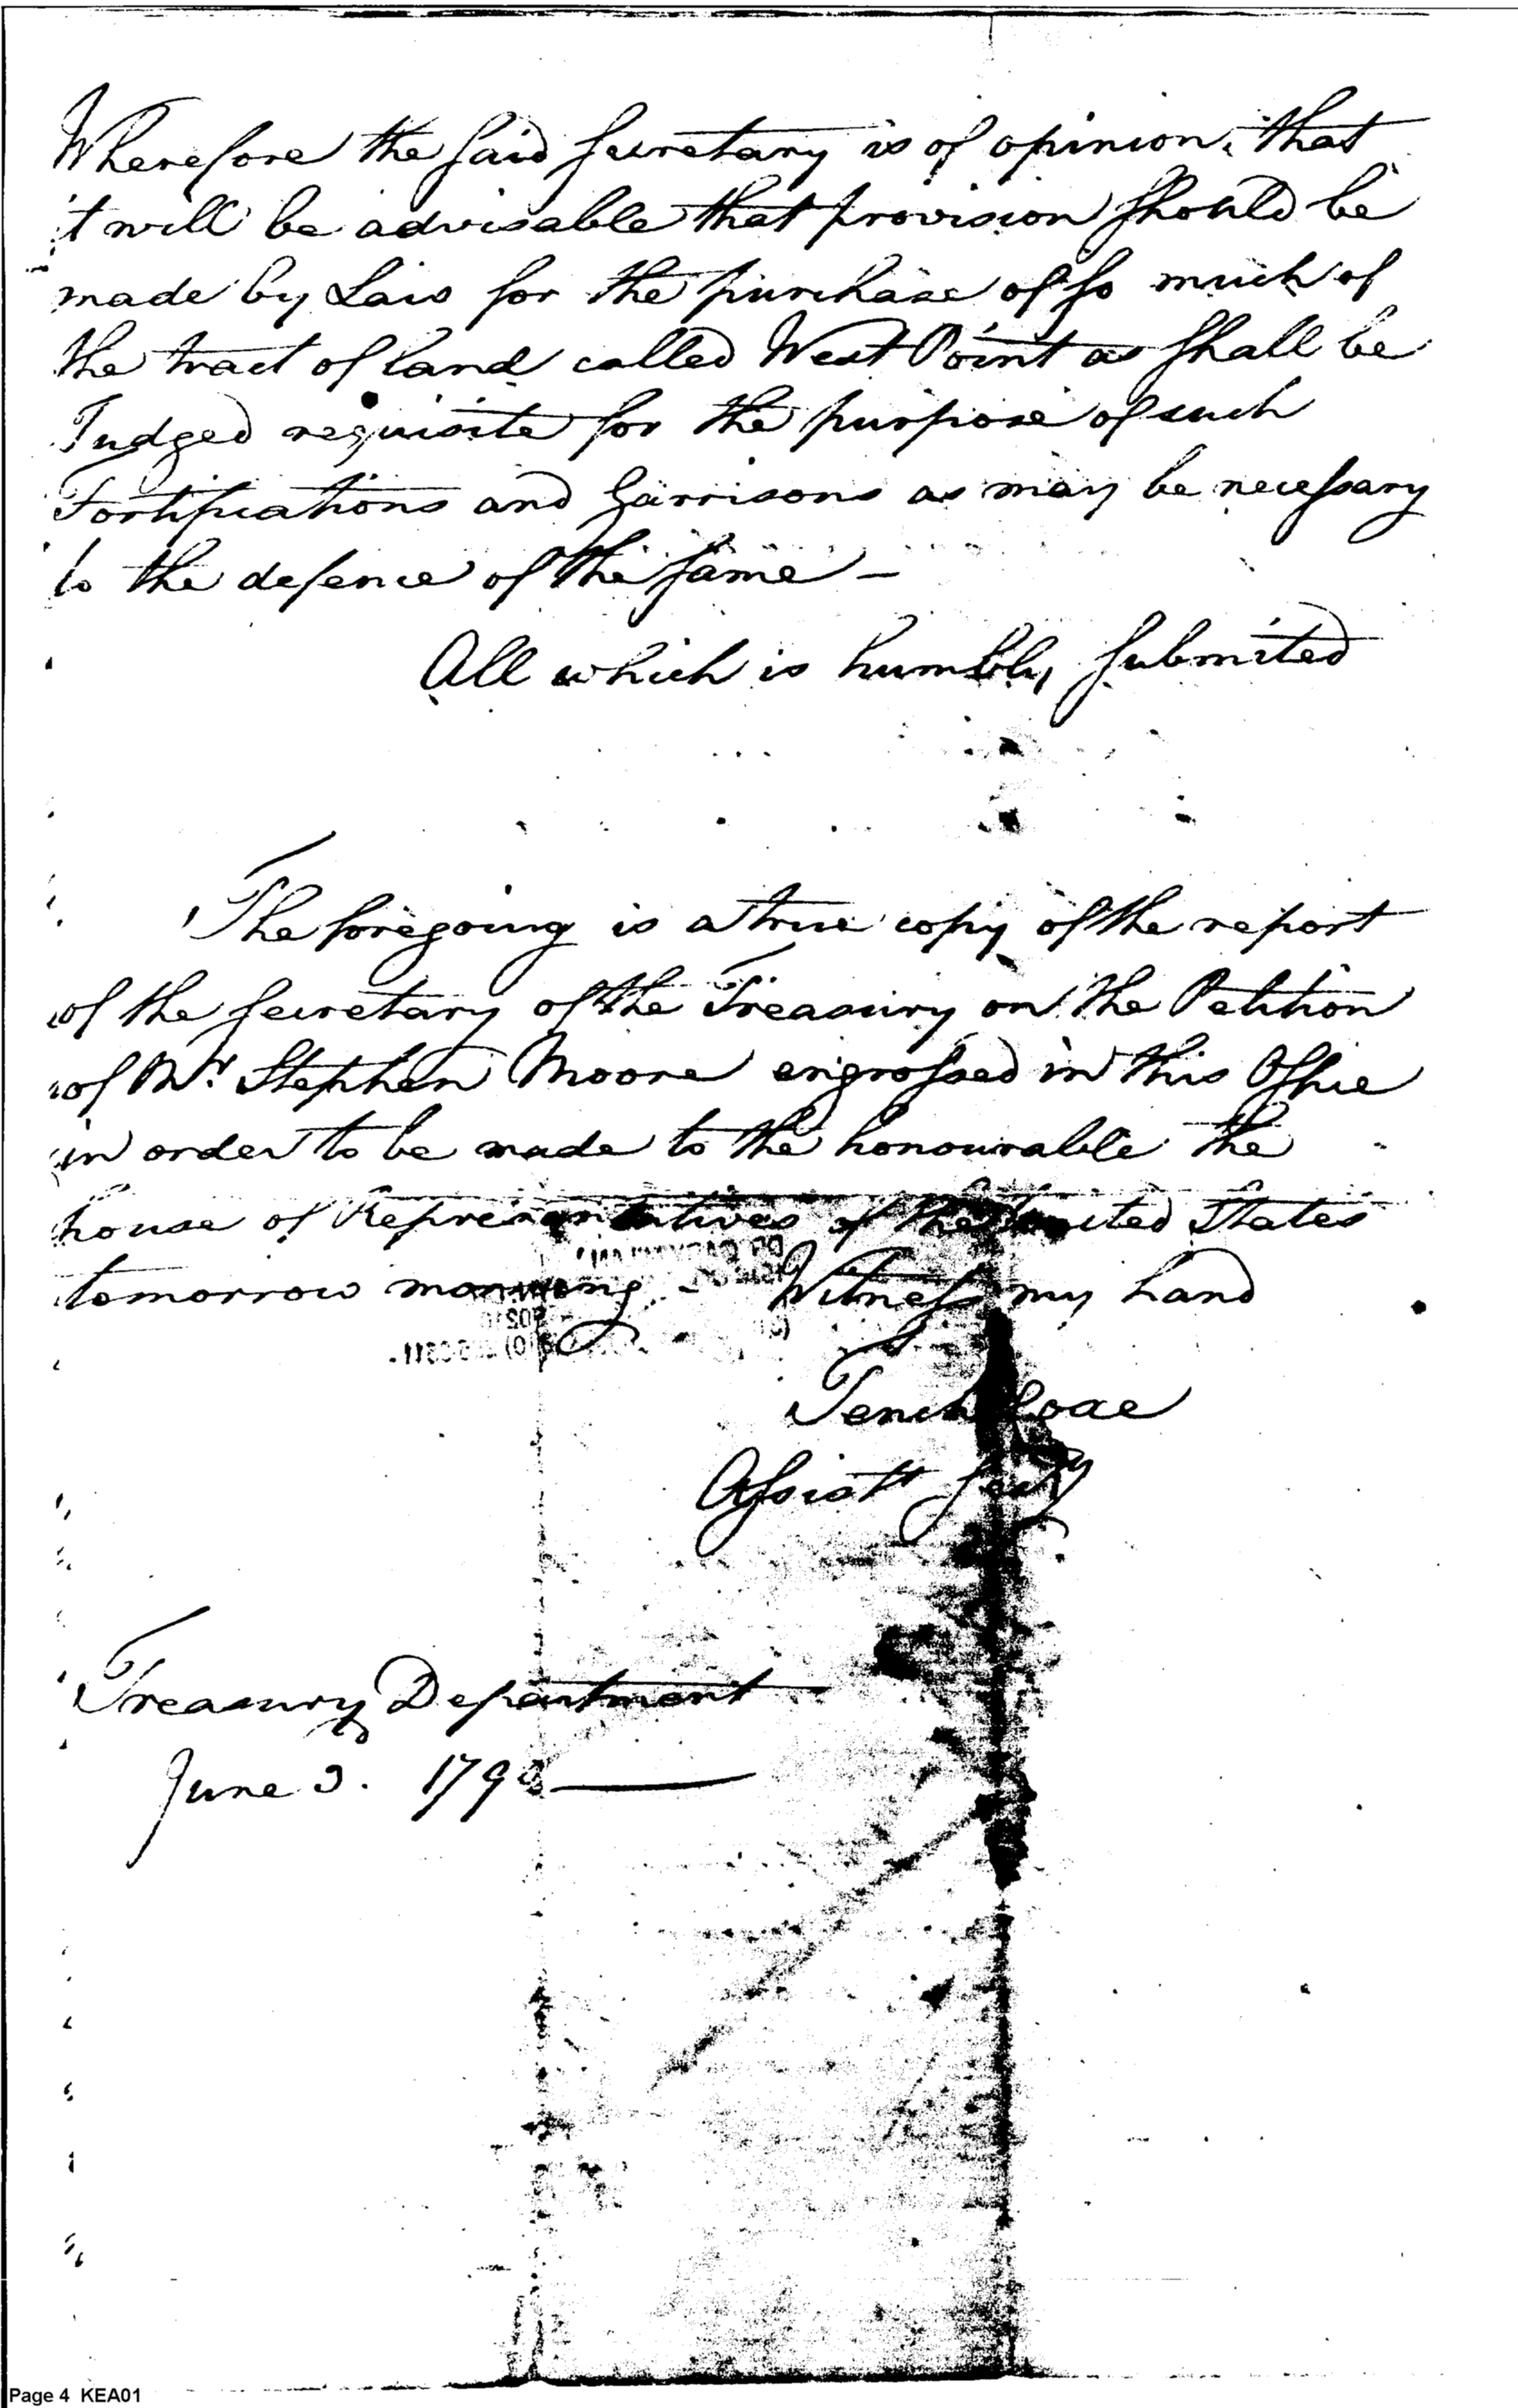 Wherefore the said secretary is of opinion, that
it will be advisable that provision should be
made by Law for the purchase of so much of
the tract of land called West Point as shall be
Judged requisite for the purpose of such
Fortifications and Garrisons as may be necessary
to the defence of the same —
All which is humbly submited
The foregoing is a true copy of the report
of the secretary of the Treasury on the Petition
of Mr. Stephen Moore engrossed in this Office
in order to be made to the honourable the
house of Representatives of the United States
tomorrow morning. — Witness my hand
Tench Coxe
Assistt Secy
Treasury Department
June 3. 1790
Page 4 KEA01